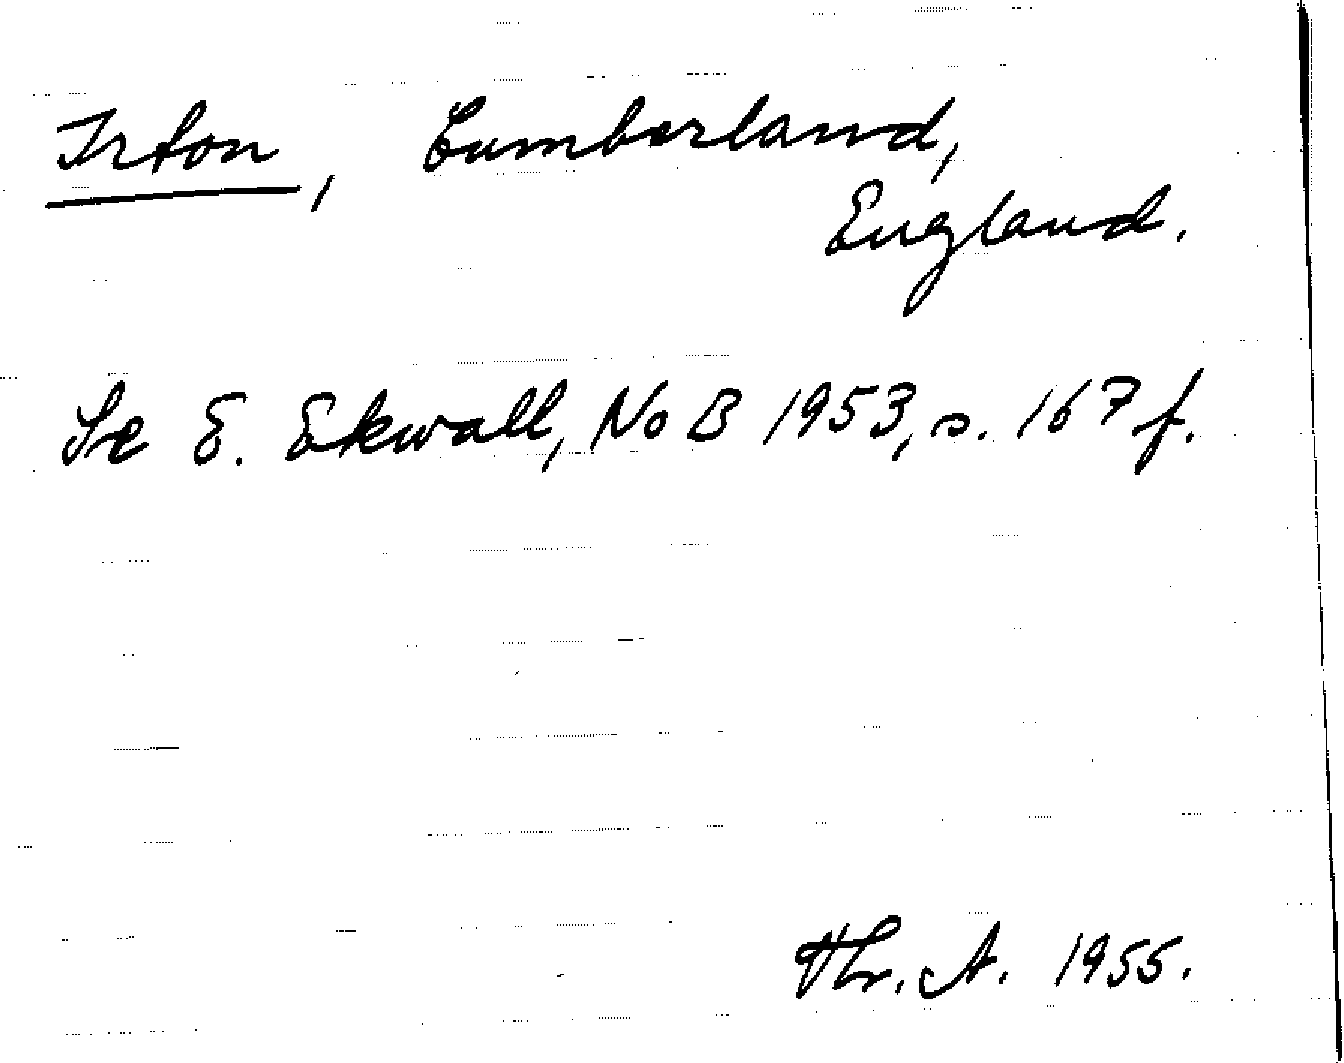 Irton, Cumberland,
England.
Se E. Ekwall, NoB 1953, s. 167 f.
Thr. A. 1955.